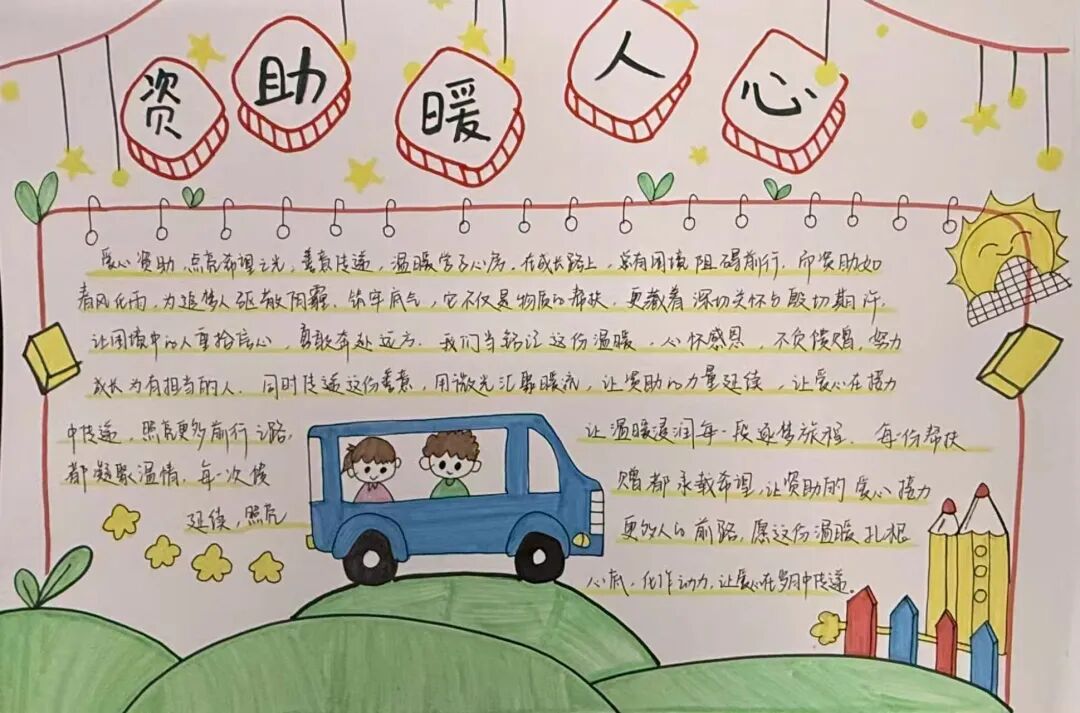 资助暖人心
爱心资助，点亮希望之光，善意传递，温暖学子心房。在成长路上，总有困境阻碍前行，而资助如
春风化雨，为追梦人驱散阴霾，筑牢底气，它不仅是物质的帮扶，更藏着深切关怀与殷切期许，
让困境中的人重拾信心，勇敢奔赴远方。我们当铭记这份温暖，心怀感恩，不负馈赠，努力
成长为有担当的人。同时传递这份善意，用微光汇聚暖流，让资助的力量延续，让爱心在接力
中传递，照亮更多前行之路，让温暖浸润每一段逐梦旅程。每一份帮扶
都凝聚温情，每一次馈赠都承载希望，让资助的爱心接力
延续，照亮更多人的前路，愿这份温暖扎根
心底，化作动力，让爱心在岁月中传递。